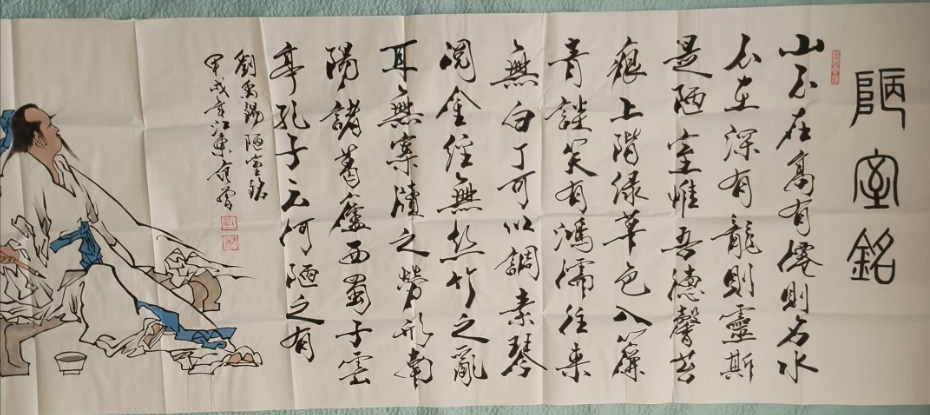 陋室銘
山不在高有僊則名水
不在深有龍則靈斯
是陋室惟吾德馨苔
痕上階緑草色入簾
青談笑有鴻儒往來
無白丁可以調素琴
閱金經無絲竹之亂
耳無案牘之勞形南
陽諸葛廬西蜀子雲
亭孔子云何陋之有
劉禹錫陋室銘
甲戌年江東范曾